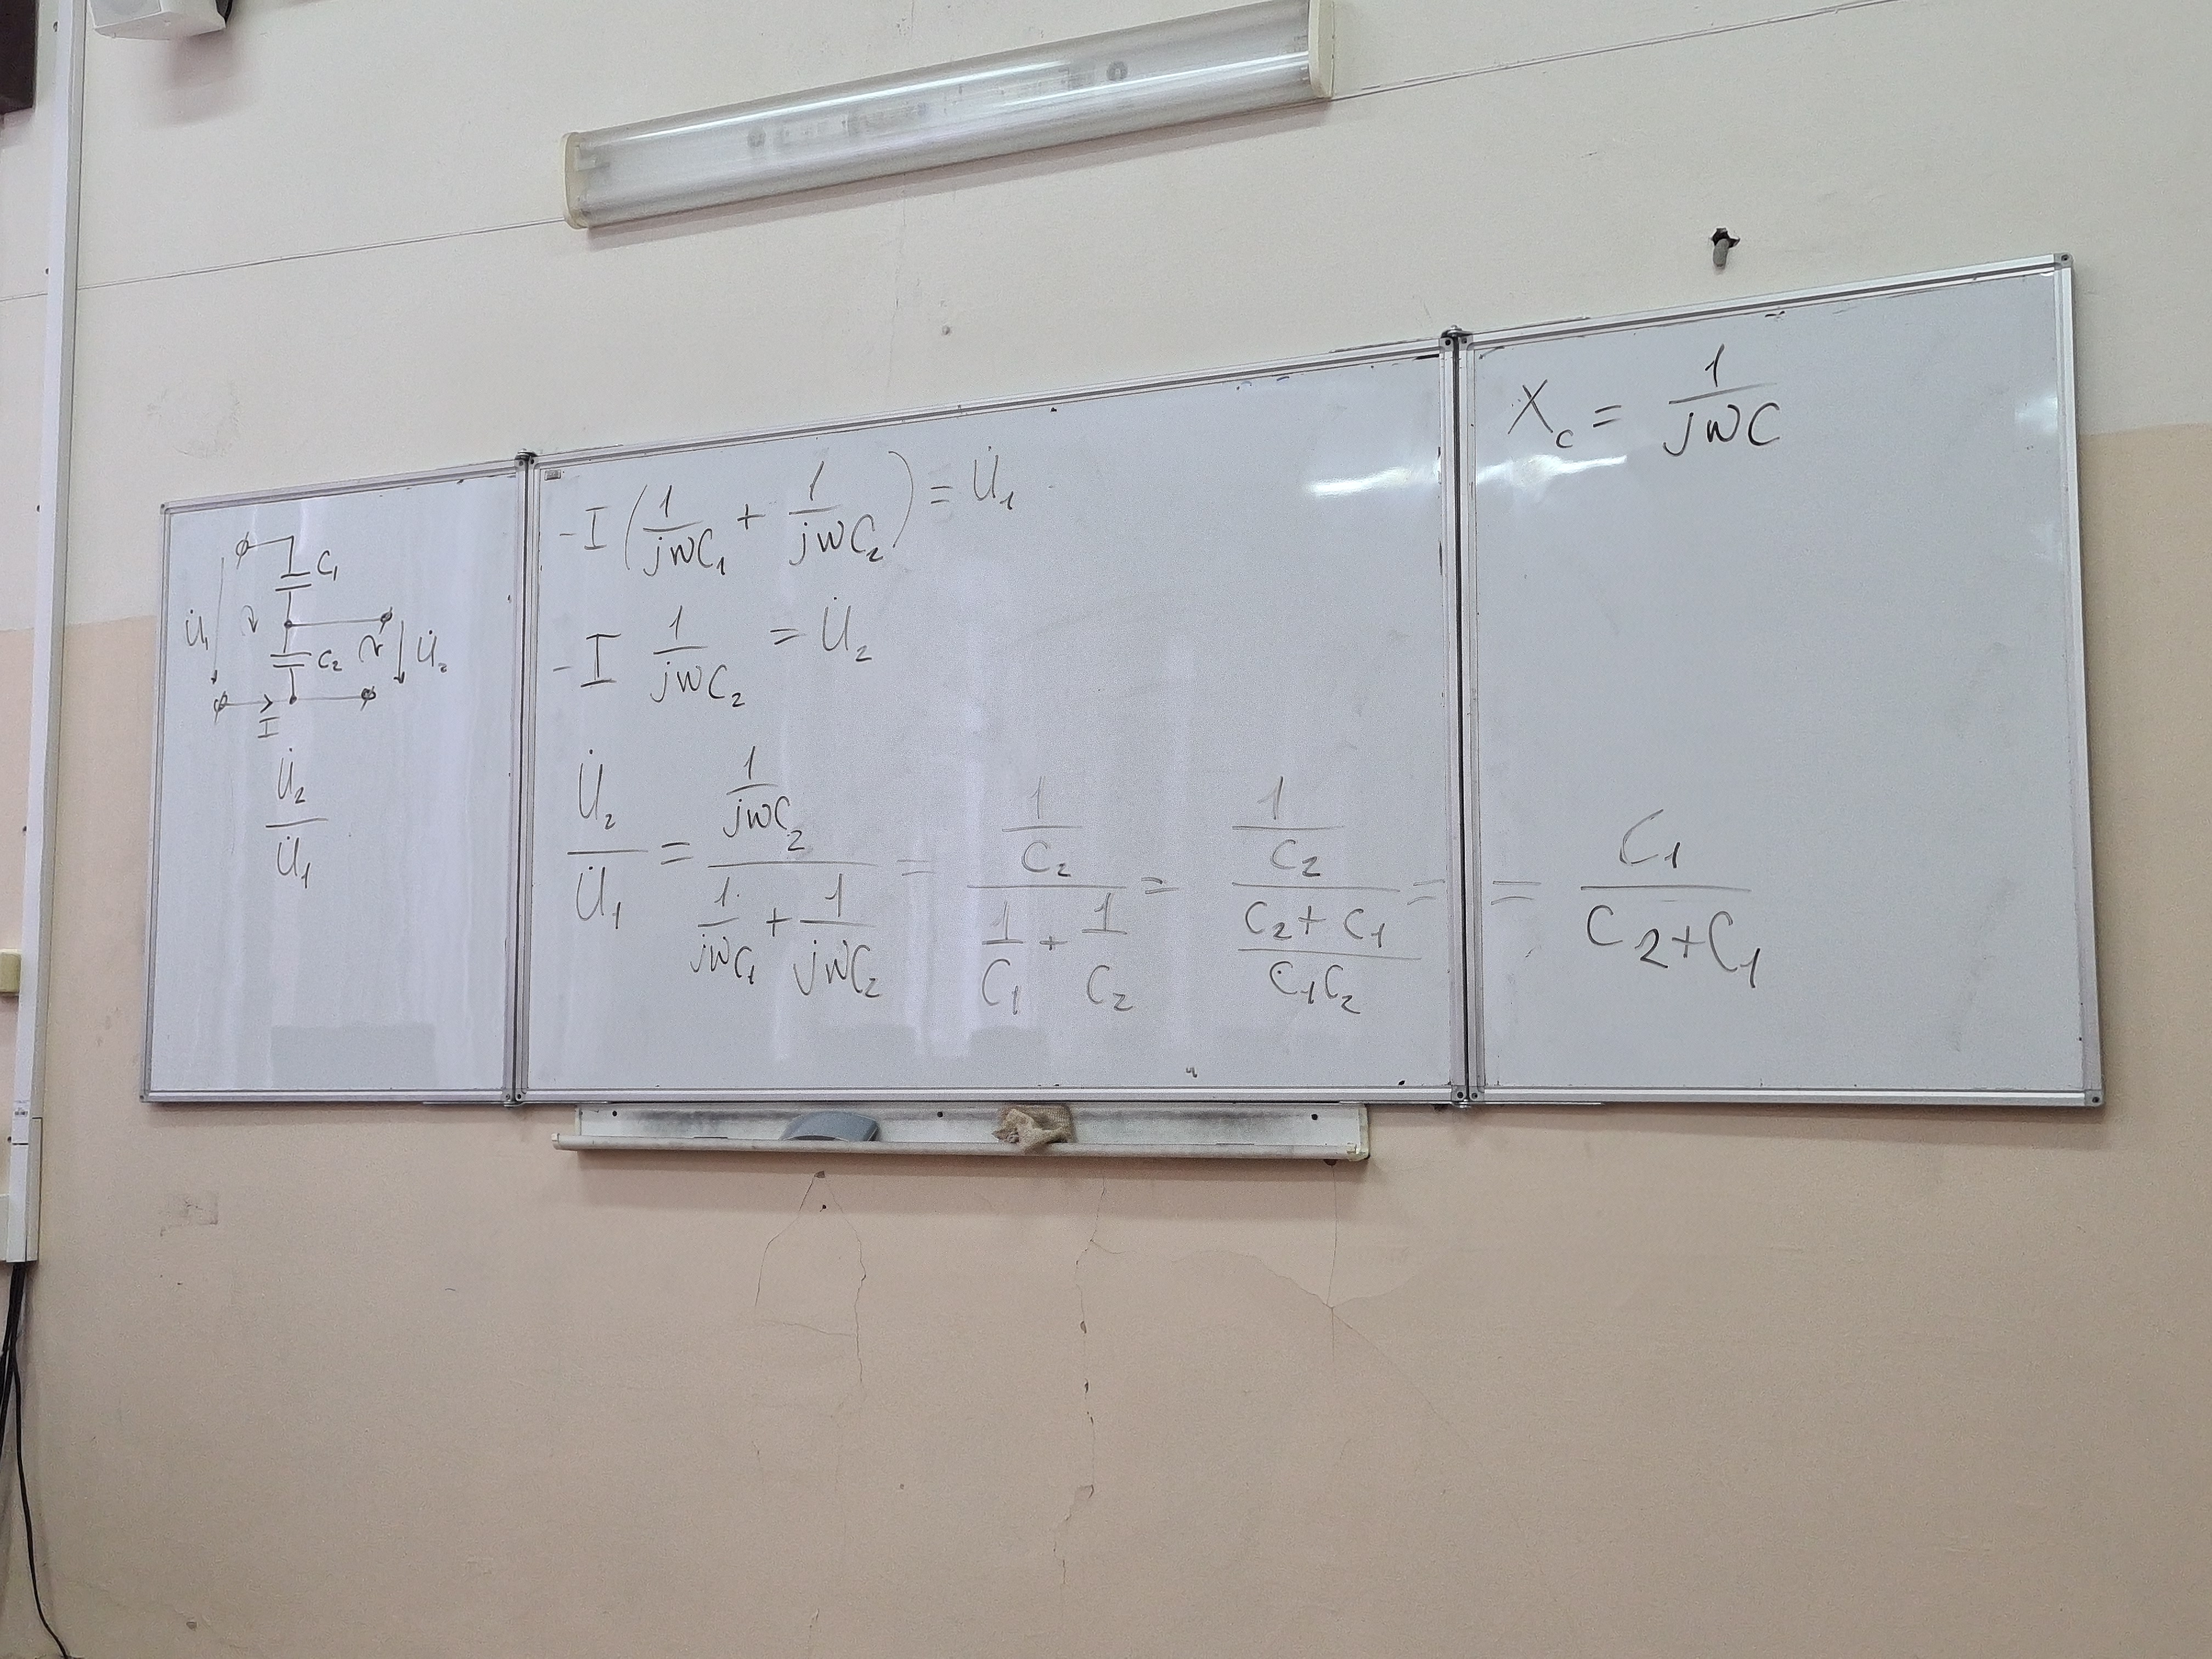 C₁
U̇₁
C₂
U̇₂
I
U̇₂/U̇₁
-I(1/(jωC₁) + 1/(jωC₂)) = U̇₁
-I 1/(jωC₂) = U̇₂
U̇₂/U̇₁ = (1/(jωC₂))/(1/(jωC₁) + 1/(jωC₂)) = (1/C₂)/(1/C₁ + 1/C₂) = (1/C₂)/((C₂+C₁)/(C₁C₂)) =
X_c = 1/(jωC)
= C₁/(C₂+C₁)